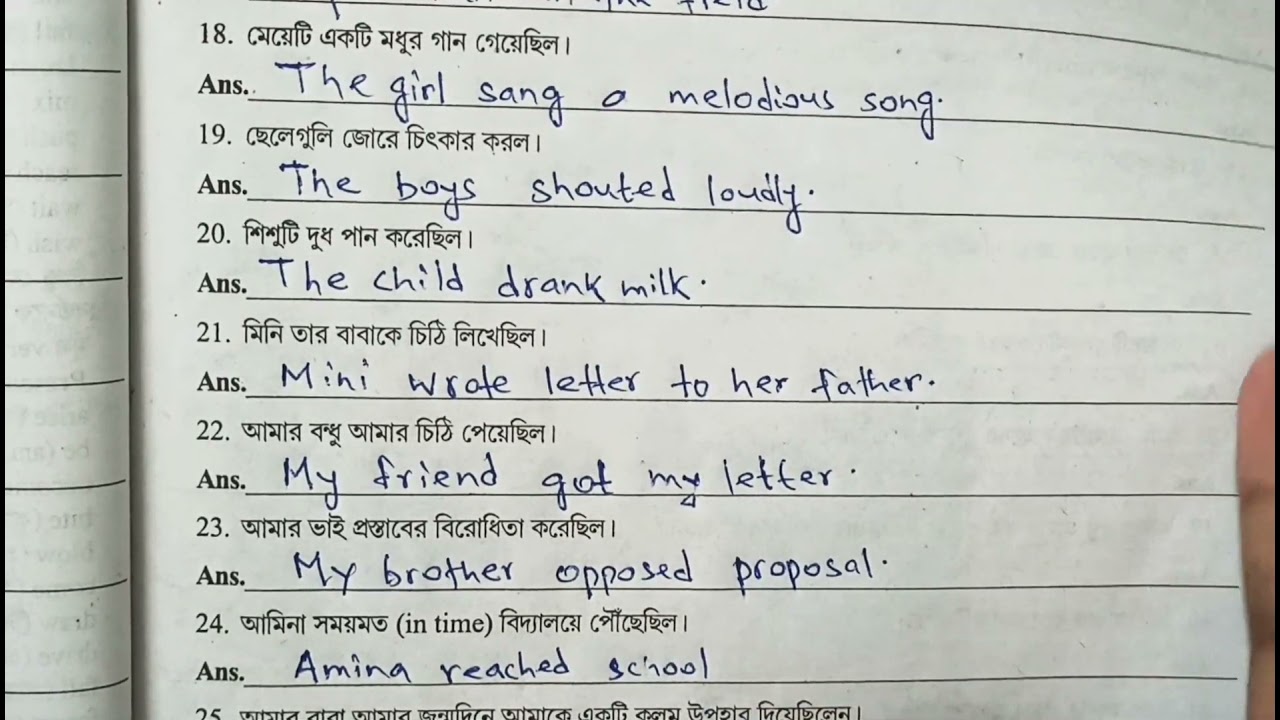 field
18. মেয়েটি একটি মধুর গান গেয়েছিল।
Ans. The girl sang a melodious song.
19. ছেলেগুলি জোরে চিৎকার করল।
Ans. The boys shouted loudly.
20. শিশুটি দুধ পান করেছিল।
Ans. The child drank milk.
21. মিনি তার বাবাকে চিঠি লিখেছিল।
Ans. Mini wrote letter to her father.
22. আমার বন্ধু আমার চিঠি পেয়েছিল।
Ans. My friend got my letter.
23. আমার ভাই প্রস্তাবের বিরোধিতা করেছিল।
Ans. My brother opposed proposal.
24. আমিনা সময়মত (in time) বিদ্যালয়ে পৌঁছেছিল।
Ans. Amina reached school
25. আমার বাবা আমার জন্মদিনে আমাকে একটি কলম উপহার দিয়েছিলেন।